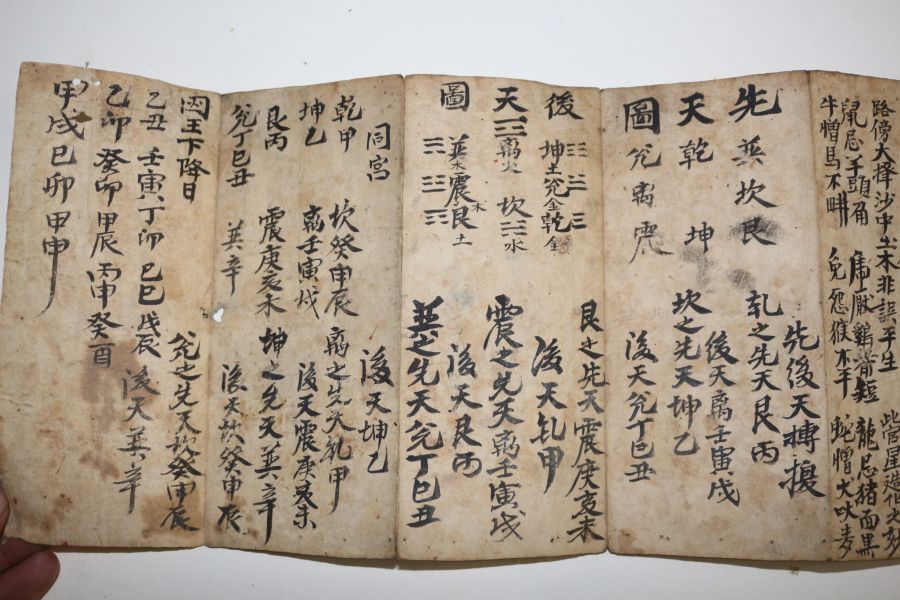 路傍大擇沙中土木非誤平生
鼠忌羊頭角 虎厭鷄嘴短 龍忌猪面黑
牛憎馬不畊 兔怨猴不平 蛇憎犬吠
先 巽坎艮 先後天轉換
乹之先天艮丙
天 乾 坤 後天离壬寅戌
坎之先天坤乙
圖 兊离震 後天兊丁巳丑
艮之先天震庚亥未
後 ☷坤土 ☱兊金 ☰乾金 後天乹甲
震之先天离壬寅戌
天 ☲离火 坎☵水
後天艮丙
圖 ☴巽木 ☳震木 ☶艮土 巽之先天兊丁巳丑
同宮 後天坤乙
乾甲 坎癸申辰 离之先天乹甲
坤乙 离壬寅戌 後天震庚亥未
艮丙 震庚亥未 坤之先天巽辛
兊丁巳丑 巽辛 後天坎癸申辰
兊之先天坎癸申辰
囚王下降日
後天巽辛
乙丑 壬寅 丁卯 己巳 戊辰
乙卯 癸卯 甲辰 丙申 癸酉
甲戌 己卯 甲申